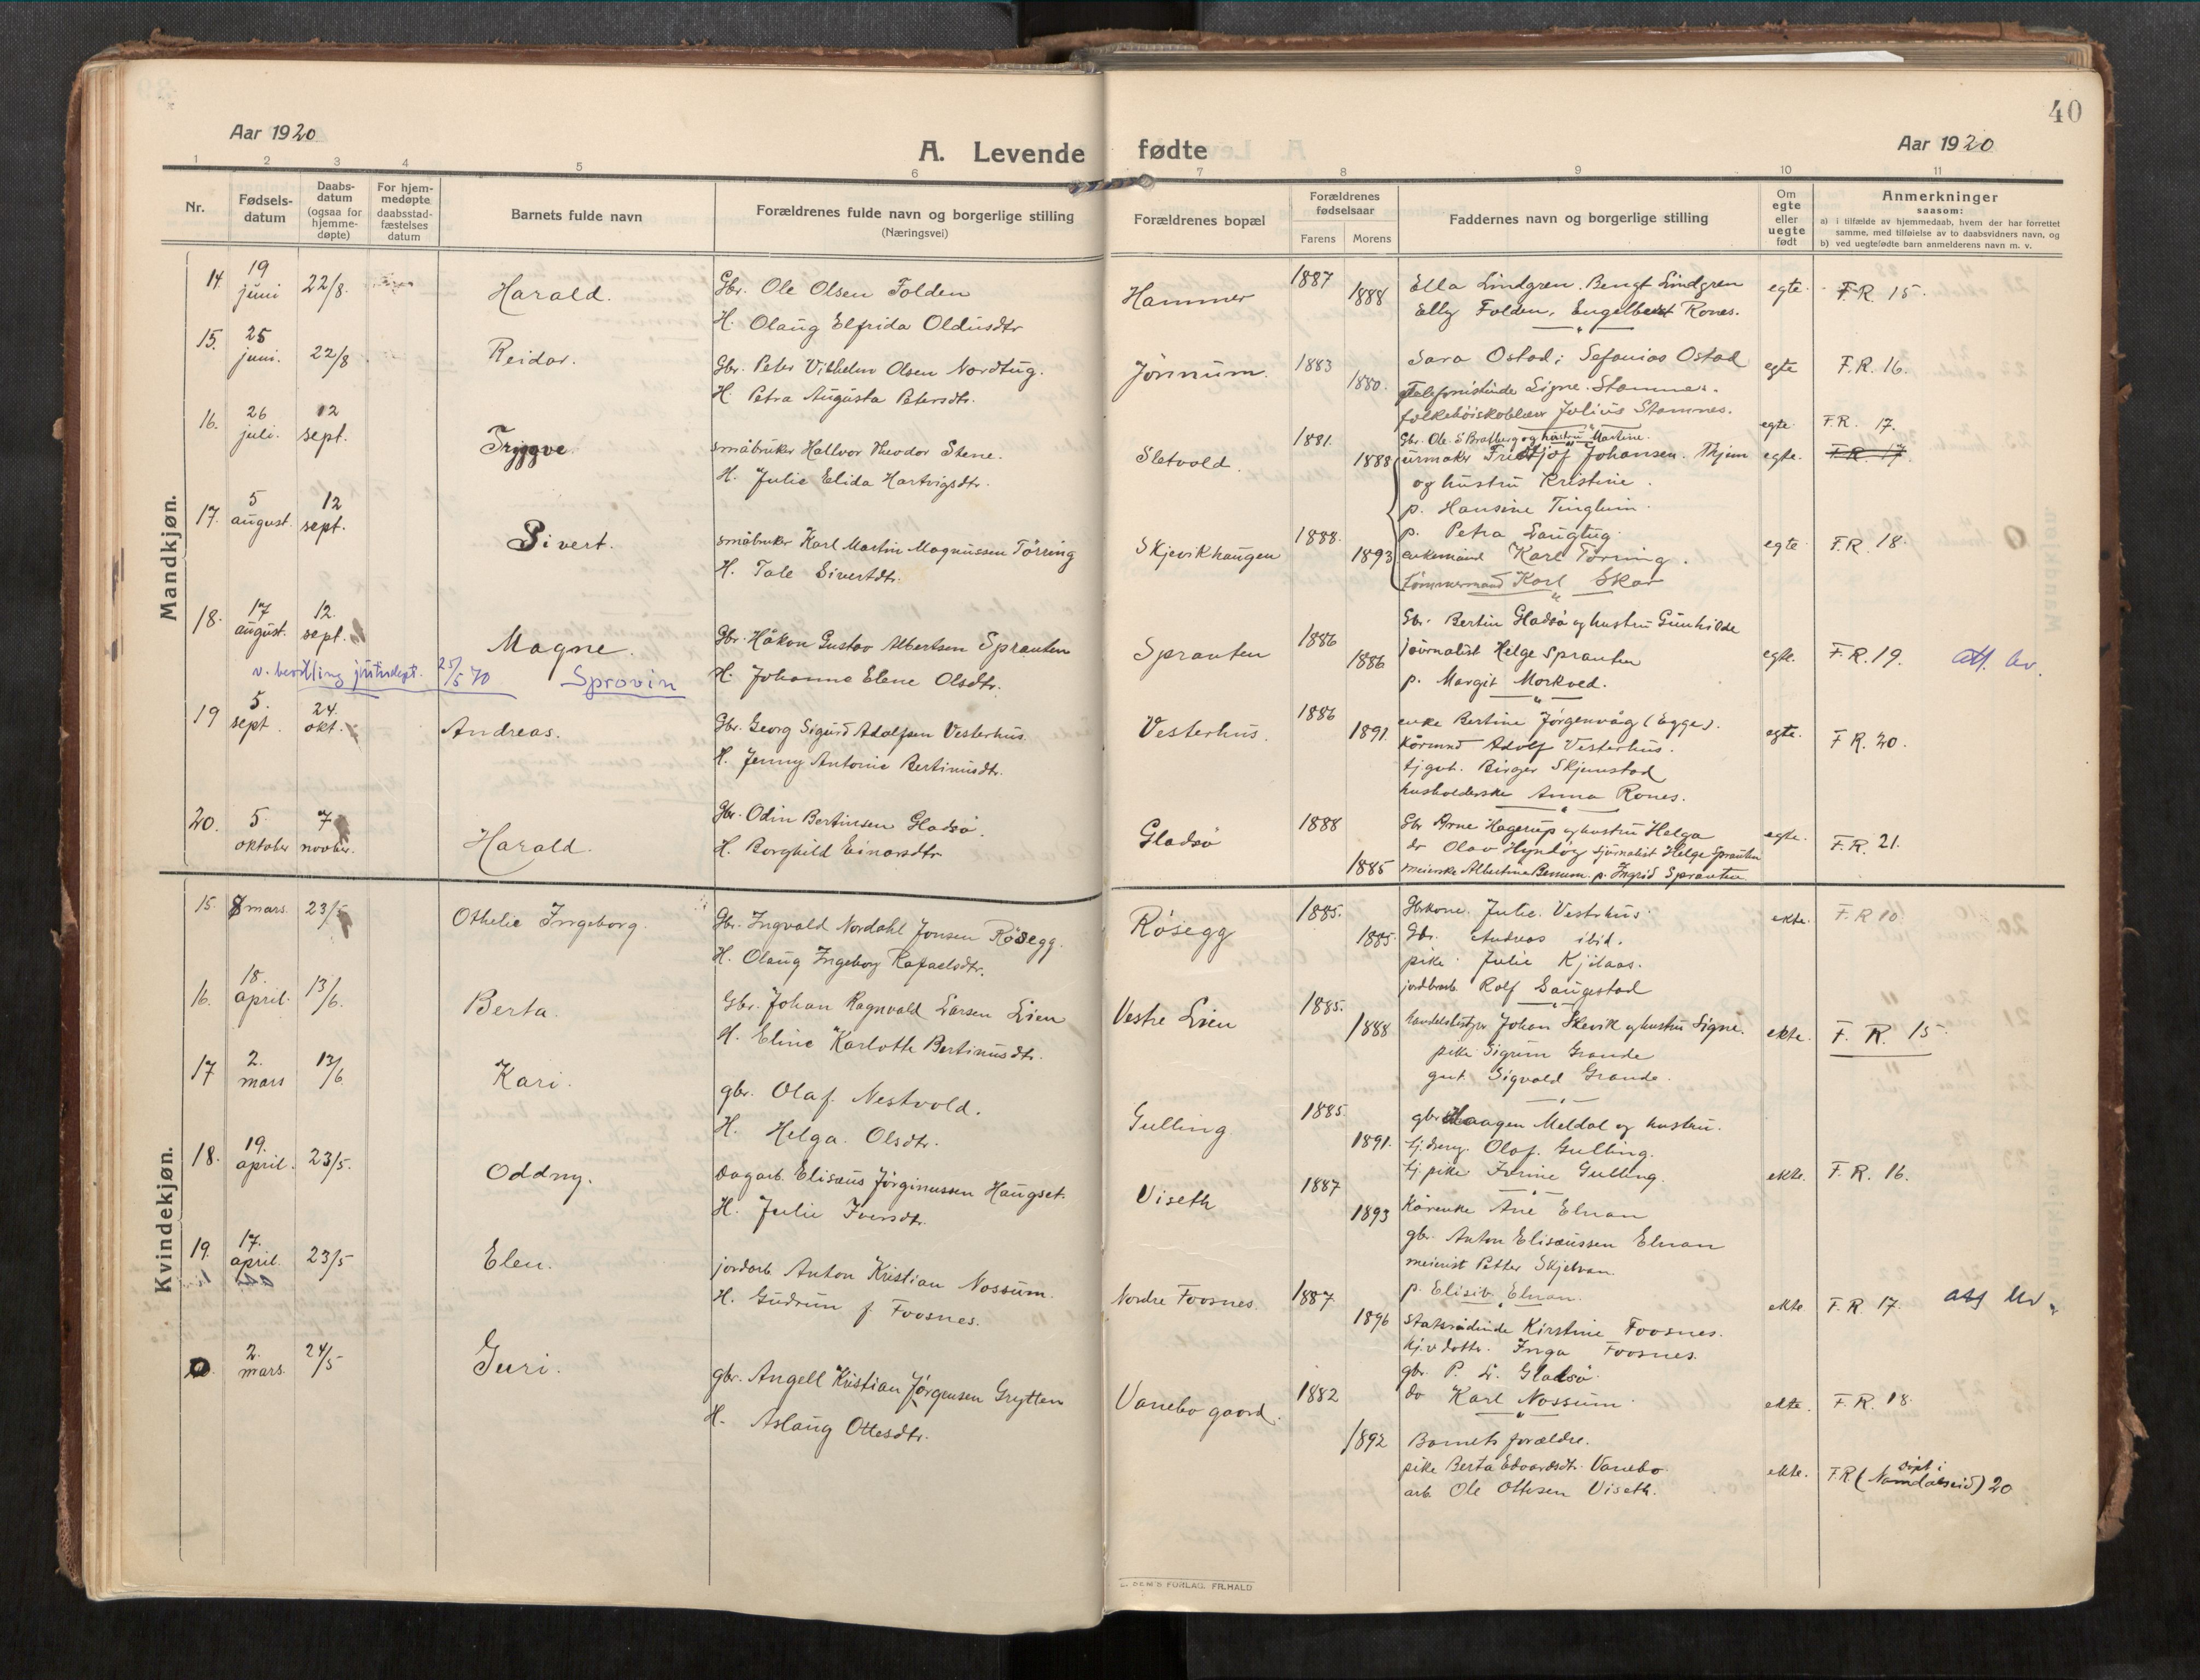 40
Aar 1920
A. Levende fødte
Aar 1920
1 2 3 4 5 6 7 8 9 10 11
Nr.
Fødsels-
datum
Daabs-
datum
(ogsaa for
hjemme-
døpte)
For hjem-
medøpte
daabsstad-
fæstelses
datum
Barnets fulde navn
Forældrenes fulde navn og borgerlige stilling
(Næringsvei)
Forældrenes bopæl
Forældrenes
fødselsaar
Farens Morens
Faddernes navn og borgerlige stilling
Om
egte
eller
uegte
født
Anmerkninger
saasom:
a) i tilfælde av hjemmedaab, hvem der har forrettet
samme, med tilføielse av to daabsvidners navn, og
b) ved uegtefødte barn anmelderens navn m. v.
Mandkjøn.
14. 19 juni 22/8. Harald.
Gbr. Ole Olsen Folden
H. Olaug Elfrida Oldusdtr
Hammer 1887 1888
Ella Lindgren. Bengt Lindgren
Elly Folden, Engelbert Rones.
egte. F.R. 15.
15. 25 juni. 22/8 Reidar.
Gbr. Peter Vilhelm Olsen Nordtug.
H. Petra Augusta Petersdtr.
Jörnum. 1883 1880.
Sara Ostad; Sefanias Ostad
Telefonistinde Signe Stamnes.
folkehöiskolelærer Julius Stamnes.
egte F.R. 16.
16. 26 juli. 12 sept. Tryggve.
småbruker Hallvor Theodor Stene.
H. Julie Elida Hartvigsdtr.
Sletvold. 1881. 1888
Gbr. Ole S Bratberg og hustru Martine.
egte. F.R. 17.
urmaker Fridtjof Johansen. Thjem
og hustru Kristine.
p. Hansine Tinglum.
egte. F.R. 17.
17. 5 august. 12 sept. Sivert.
småbruker Karl Martin Magnussen Törring
H. Tale Sivertdtr.
Skjevikhaugen 1888. 1893
p. Petra Langtug.
enkemand Karl Törring.
tömmermand Karl Skar
egte F.R. 18.
18. 17 august. 12. sept. Magne.
Gbr. Håkon Gustav Albertsen Spranten
H. Johanna Elene Olsdtr.
Spranten 1886 1886
Gbr. Bertin Gladsö og hustru Gunhilde
journalist Helge Spranten
p. Margit Morkved.
egte. F.R. 19. att. av.
v. bevilling justisdept. 25/5 70 Sprovin
19 5. sept. 24. okt. Andreas.
Gbr. Georg Sigurd Adolfsen Vesterhus.
H. Jenny Antonie Bertinusdtr.
Vesterhus. 1886 1891.
enke Bertine Jörgenvåg (Egge).
kårmand Adolf Vesterhus.
tj gut. Birger Skjemstad
husholderske Anna Rones.
egte. F.R. 20.
20. 5. oktober 7 novber. Harald.
Gbr. Odin Bertinsen Gladsö.
H. Borghild Einarsdtr
Gladsö 1888 1885
Gbr Arne Hagerup og hustru Helga
do Olav Hyndöy journalist Helge Spranten
meierske Albertine Benum. p. Ingrid Spranten
egte. F.R. 21.
Kvindekjøn.
15. 8 mars. 23/5 Othelie Ingeborg.
Gbr. Ingvald Nordahl Jonsen Rösegg.
H. Olaug Ingeborg Rafaelsdtr.
Rösegg 1885. 1885.
Gbrkone. Julie. Vestrhus.
Gbr. Andreas ibid.
pike. Julie Kjölaas.
jordbrarb. Rolf Langestad
ekte. F.R 10.
16. 18. april. 13/6. Berta.
Gbr. Johan Ragnvald Larsen Lien
H. Eline Karlotte Bertinusdtr.
Vestre Lien 1885. 1888
handelsbestyr Johan Skevik og hustru Signe.
pike Sigrun Grande
gut Sigvald Grande.
ekte. F. R. 15.
17 2. mars 13/6 Kari.
gbr. Olaf Nestvold.
H. Helga. Olsdtr.
Gulling 1885. 1891.
gbr Haagen Meldal og hustru.
tj.dreng. Olaf. Gulling.
tj. pike. Irine Gulling.
ekte. F.R. 16.
18. 19. april. 23/5. Oddny.
Dagarb. Elisæus Jörginussen Haugset.
H. Julie Iversdtr.
Viseth 1887 1893
Kårenke Ane Elnan
gbr. Anton Elisæussen Elnan
meierist Petter Skjelvan.
p. Elisiv. Elnan.
ekte F.R. 17. att Uv.
19. 17. april. 23/5 Elen.
jordarb Anton Kristian Nossum.
H. Gudrun f. Foosnes.
Nordre Foosnes. 1887 1896
Statsrådinde Kirstine Foosnes.
Kj.v datter. Inga Foosnes.
gbr. P. L. Gladsö.
do Karl Nossum
ekte. F.R. 18.
20. 2. mars. 24/5 Guri.
gbr. Angell Kristian Jörgensen Grytten
H. Aslaug Ottesdtr.
Vanebo gaard. 1882 1892
Barnets forældre.
pike Berta Edvardsdtr. Vanebo.
arb. Ole Ottesen Viseth.
ekte. F.R. (döpt i Namdalseid) 20
E. SEM'S FORLAG, FR.HALD